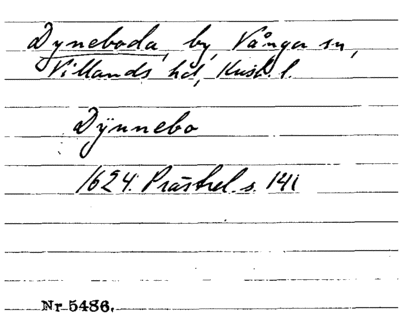 Dyneboda, by, Vånga sn,
Villands hd, Krist. l.
Dÿnnebo
1624. Prästrel. s. 141
Nr 5486.